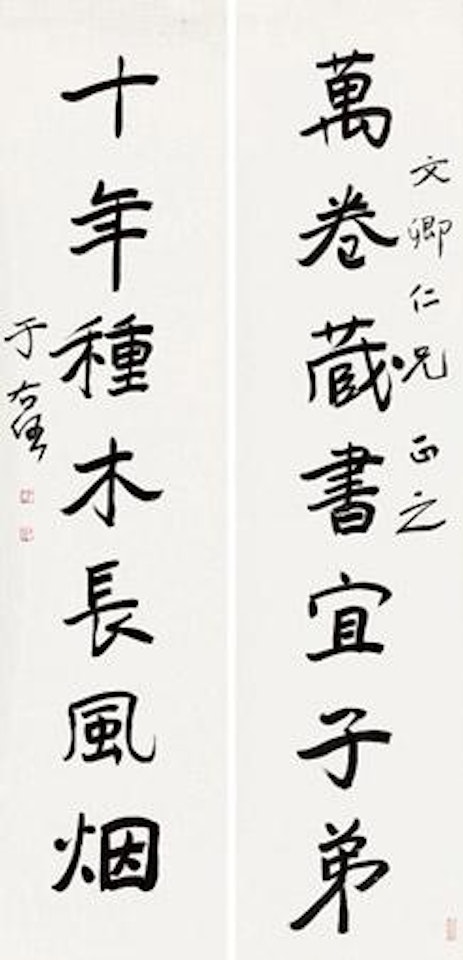 文卿仁兄正之
萬卷蔵書宜子弟
十年種木長風烟
于右任